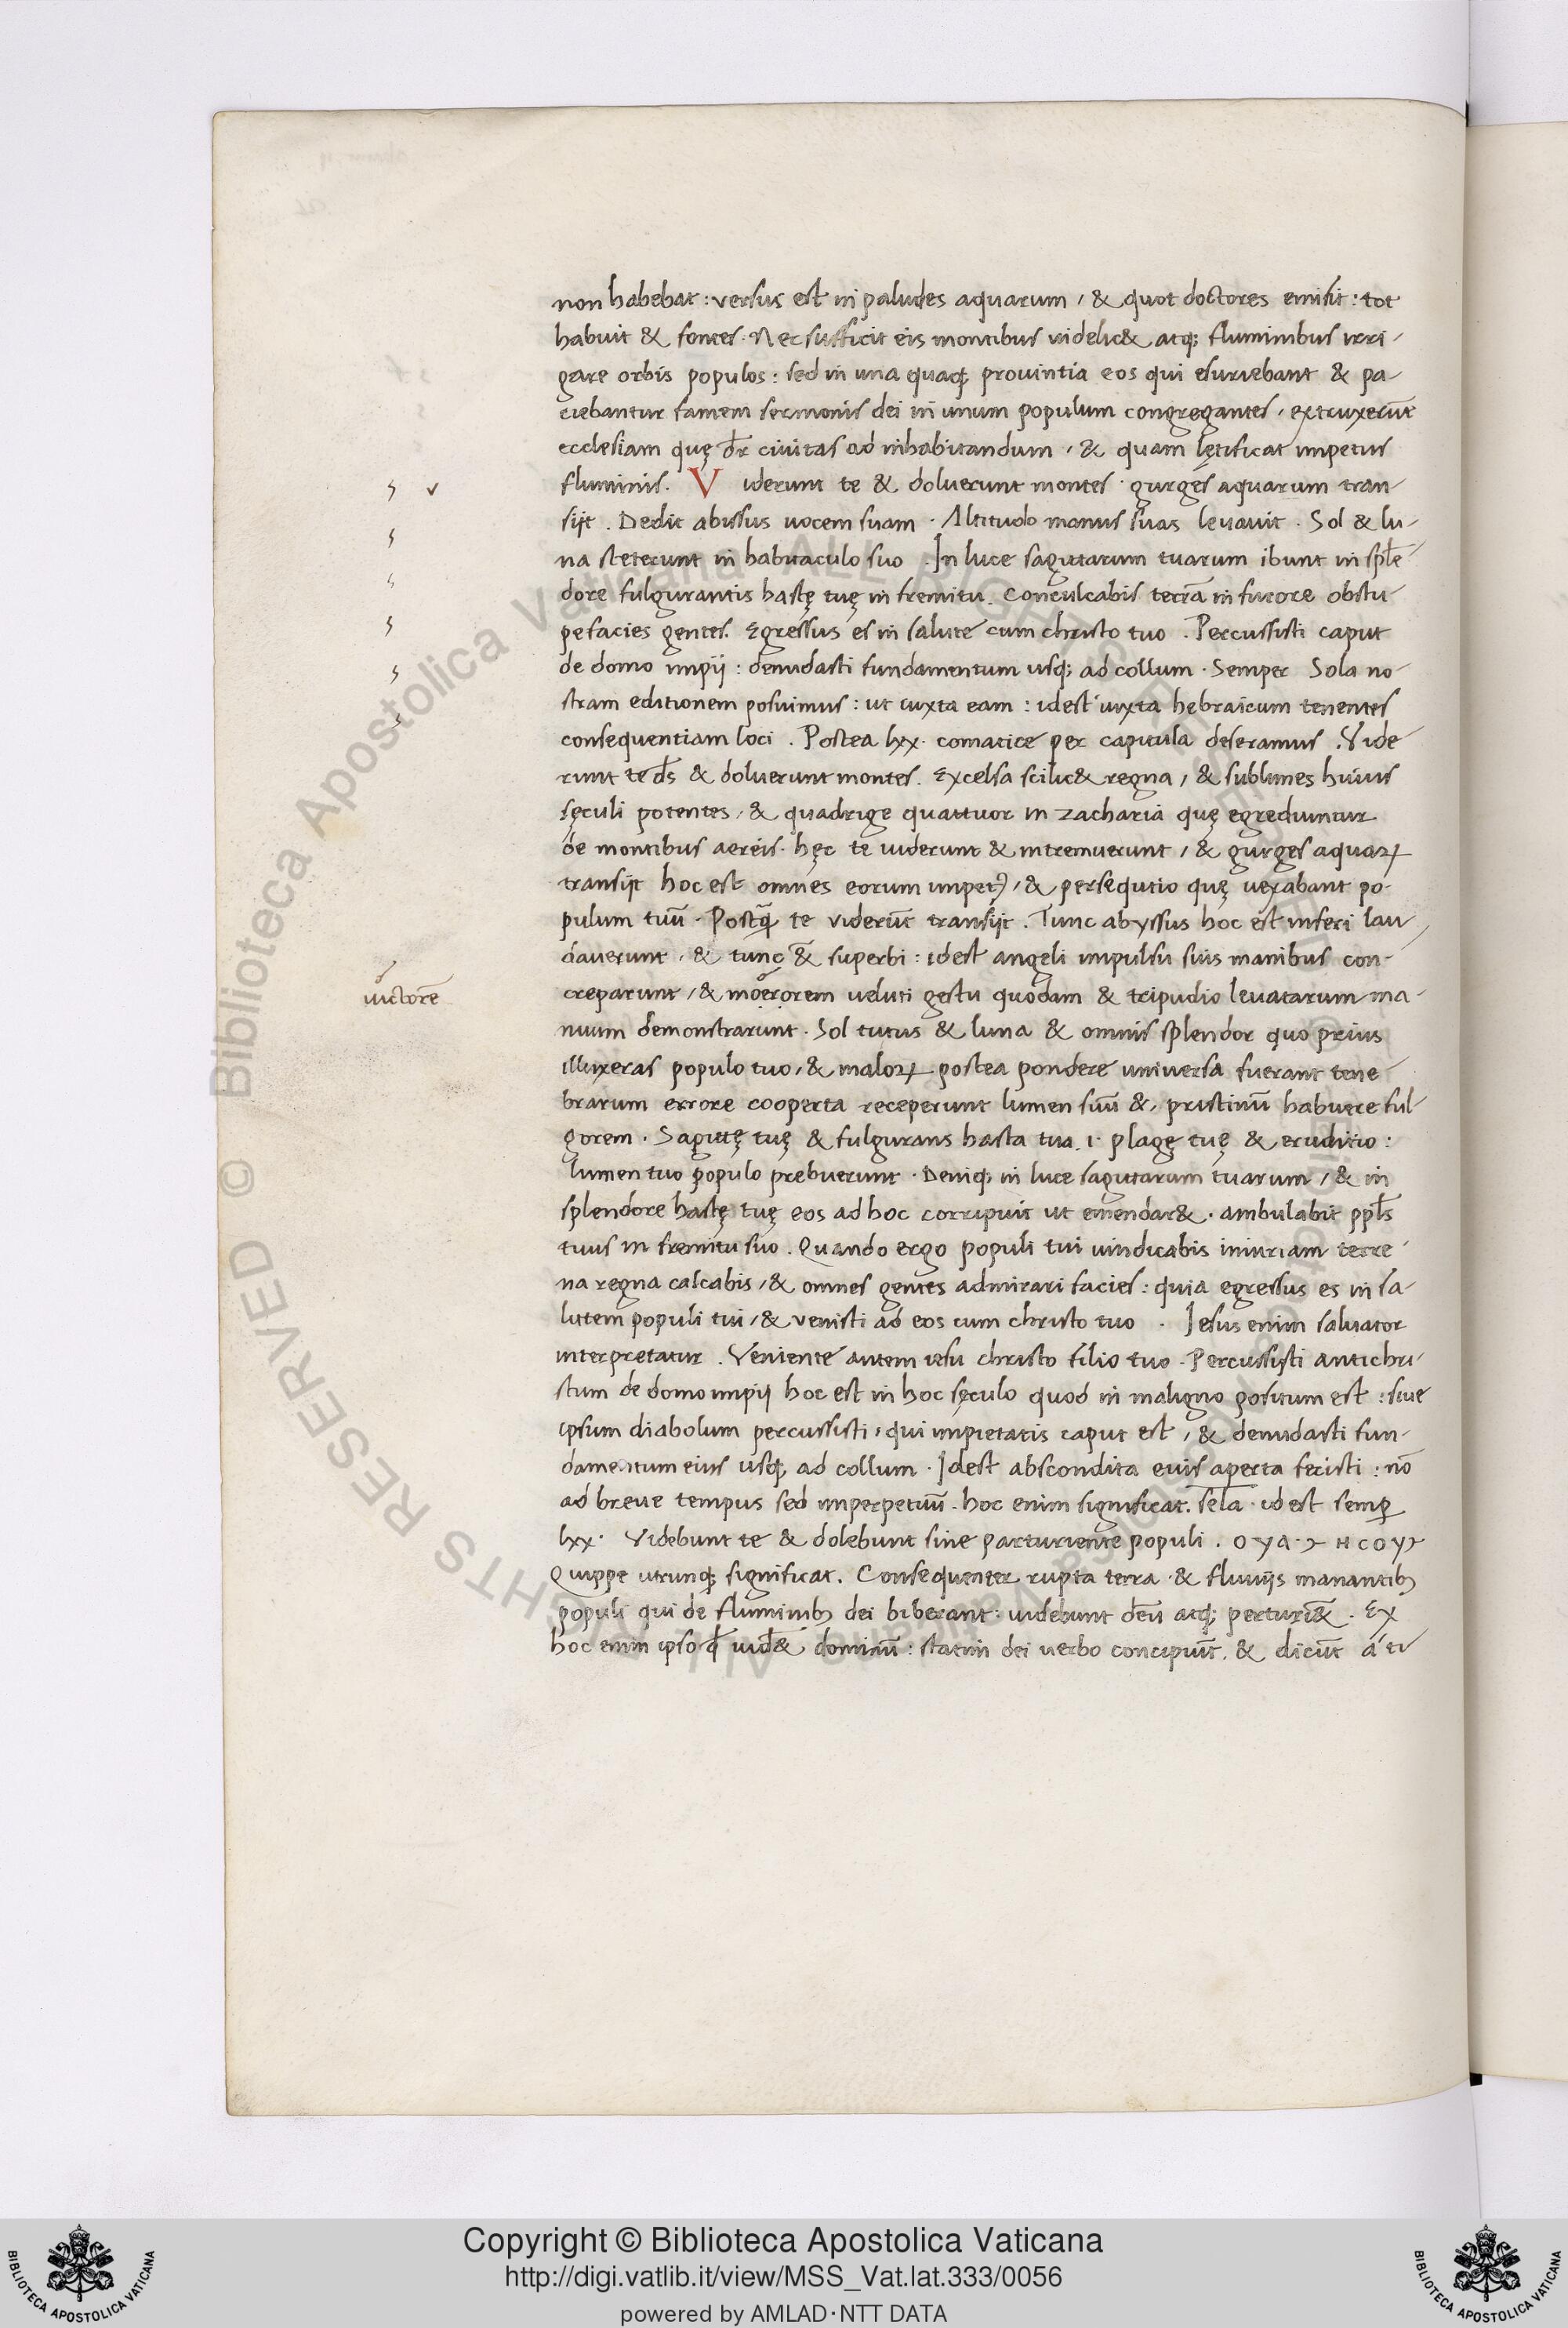 non habebat : versus est in paludes aquarum / & quot doctores emisit : tot
habuit & fontes . Nec sufficit eis montibus videlic& atq; fluminibus irri-
gare orbis populos : sed in una quaq; provintia eos qui esuriebant & pa-
ciebantur famem sermonis dei in unum populum congregantes , extruxerūt
ecclesiam quę dr̄ civitas ad inhabitandum , & quam lętificat impetus
fluminis . Viderunt te & doluerunt montes . gurges aquarum tran-
sijt . Dedit abissus vocem suam . Altitudo manus suas levavit . Sol & lu-
na steterunt in habitaculo suo . In luce sagittarum tuarum ibunt in splē-
dore fulgurantis hastę tuę in fremitu . Conculcabis terrā in furore obstu-
pefacies gentes . Egressus es in salute cum christo tuo . Percussisti caput
de domo impij : denudasti fundamentum usq; ad collum . Semper Sola no-
stram editionem posuimus : ut iuxta eam : idest iuxta hebraicum tenentes
consequentiam loci . Postea lxx . comatice per capitula deseramus . Vide
runt te ds̄ & doluerunt montes . Excelsa scilic& regna , & sublimes huius
sęculi potentes , & quadrige quattuor in zacharia quę egrediuntur
de montibus aereis . hęc te viderunt & intremuerunt , & gurges aquaꝝ
transijt hoc est omnes eorum impetꝰ , & persequtio quę vexabant po-
pulum tuū . Postꝗ̄ te viderūt transijt . Tunc abyssus hoc est inferi lau-
daverunt , & tunc & superbi : idest angeli impulsu suis manibus con-
creparunt , & moerorem veluti gestu quodam & tripudio levatarum ma-
victorē
nuum demonstrarunt . Sol tutus & luna & omnis splendor quo prius
illuxeras populo tuo , & maloꝝ postea pondere universa fuerant tene-
brarum errore cooperta receperunt lumen suū & , pristinū habuere ful-
gorem . Sagittę tuę & fulgurans hasta tua . i . plagę tuę & eruditio :
lumen tuo populo prebuerunt . Deniq; in luce sagittarum tuarum , & in
splendore hastę tuę eos ad hoc corripuit ut emendar& . ambulabit ppl̄s
tuus in fremitu suo . Quando ergo populi tui vindicabis iniuriam terre-
na regna calcabis , & omnes gentes admirari facies : quia egressus es in sa-
lutem populi tui , & venisti ad eos cum christo tuo . Jesus enim salvator
interpretatur . Veniente autem iesu christo filio tuo . Percussisti antichri-
stum de domo impij hoc est in hoc sęculo quod in maligno positum est : sive
ipsum diabolum percussisti , qui impietatis caput est , & denudasti fun-
damentum eius usq; ad collum . Idest abscondita euis aperta fecisti : nō
ad breve tempus sed imperpetuū . hoc enim significat . sela . idest semꝑ
lxx . Videbunt te & dolebunt sine parturiente populi .
Quippe utrunq; significat . Consequenter rupta terra . & fluvijs manantibꝫ
populi qui de fluminibꝫ dei biberant : videbunt deū atq; perturi& . Ex
hoc enim ipso ꝙ vid& dominū : statim dei verbo concipiūt , & dicūt á ti